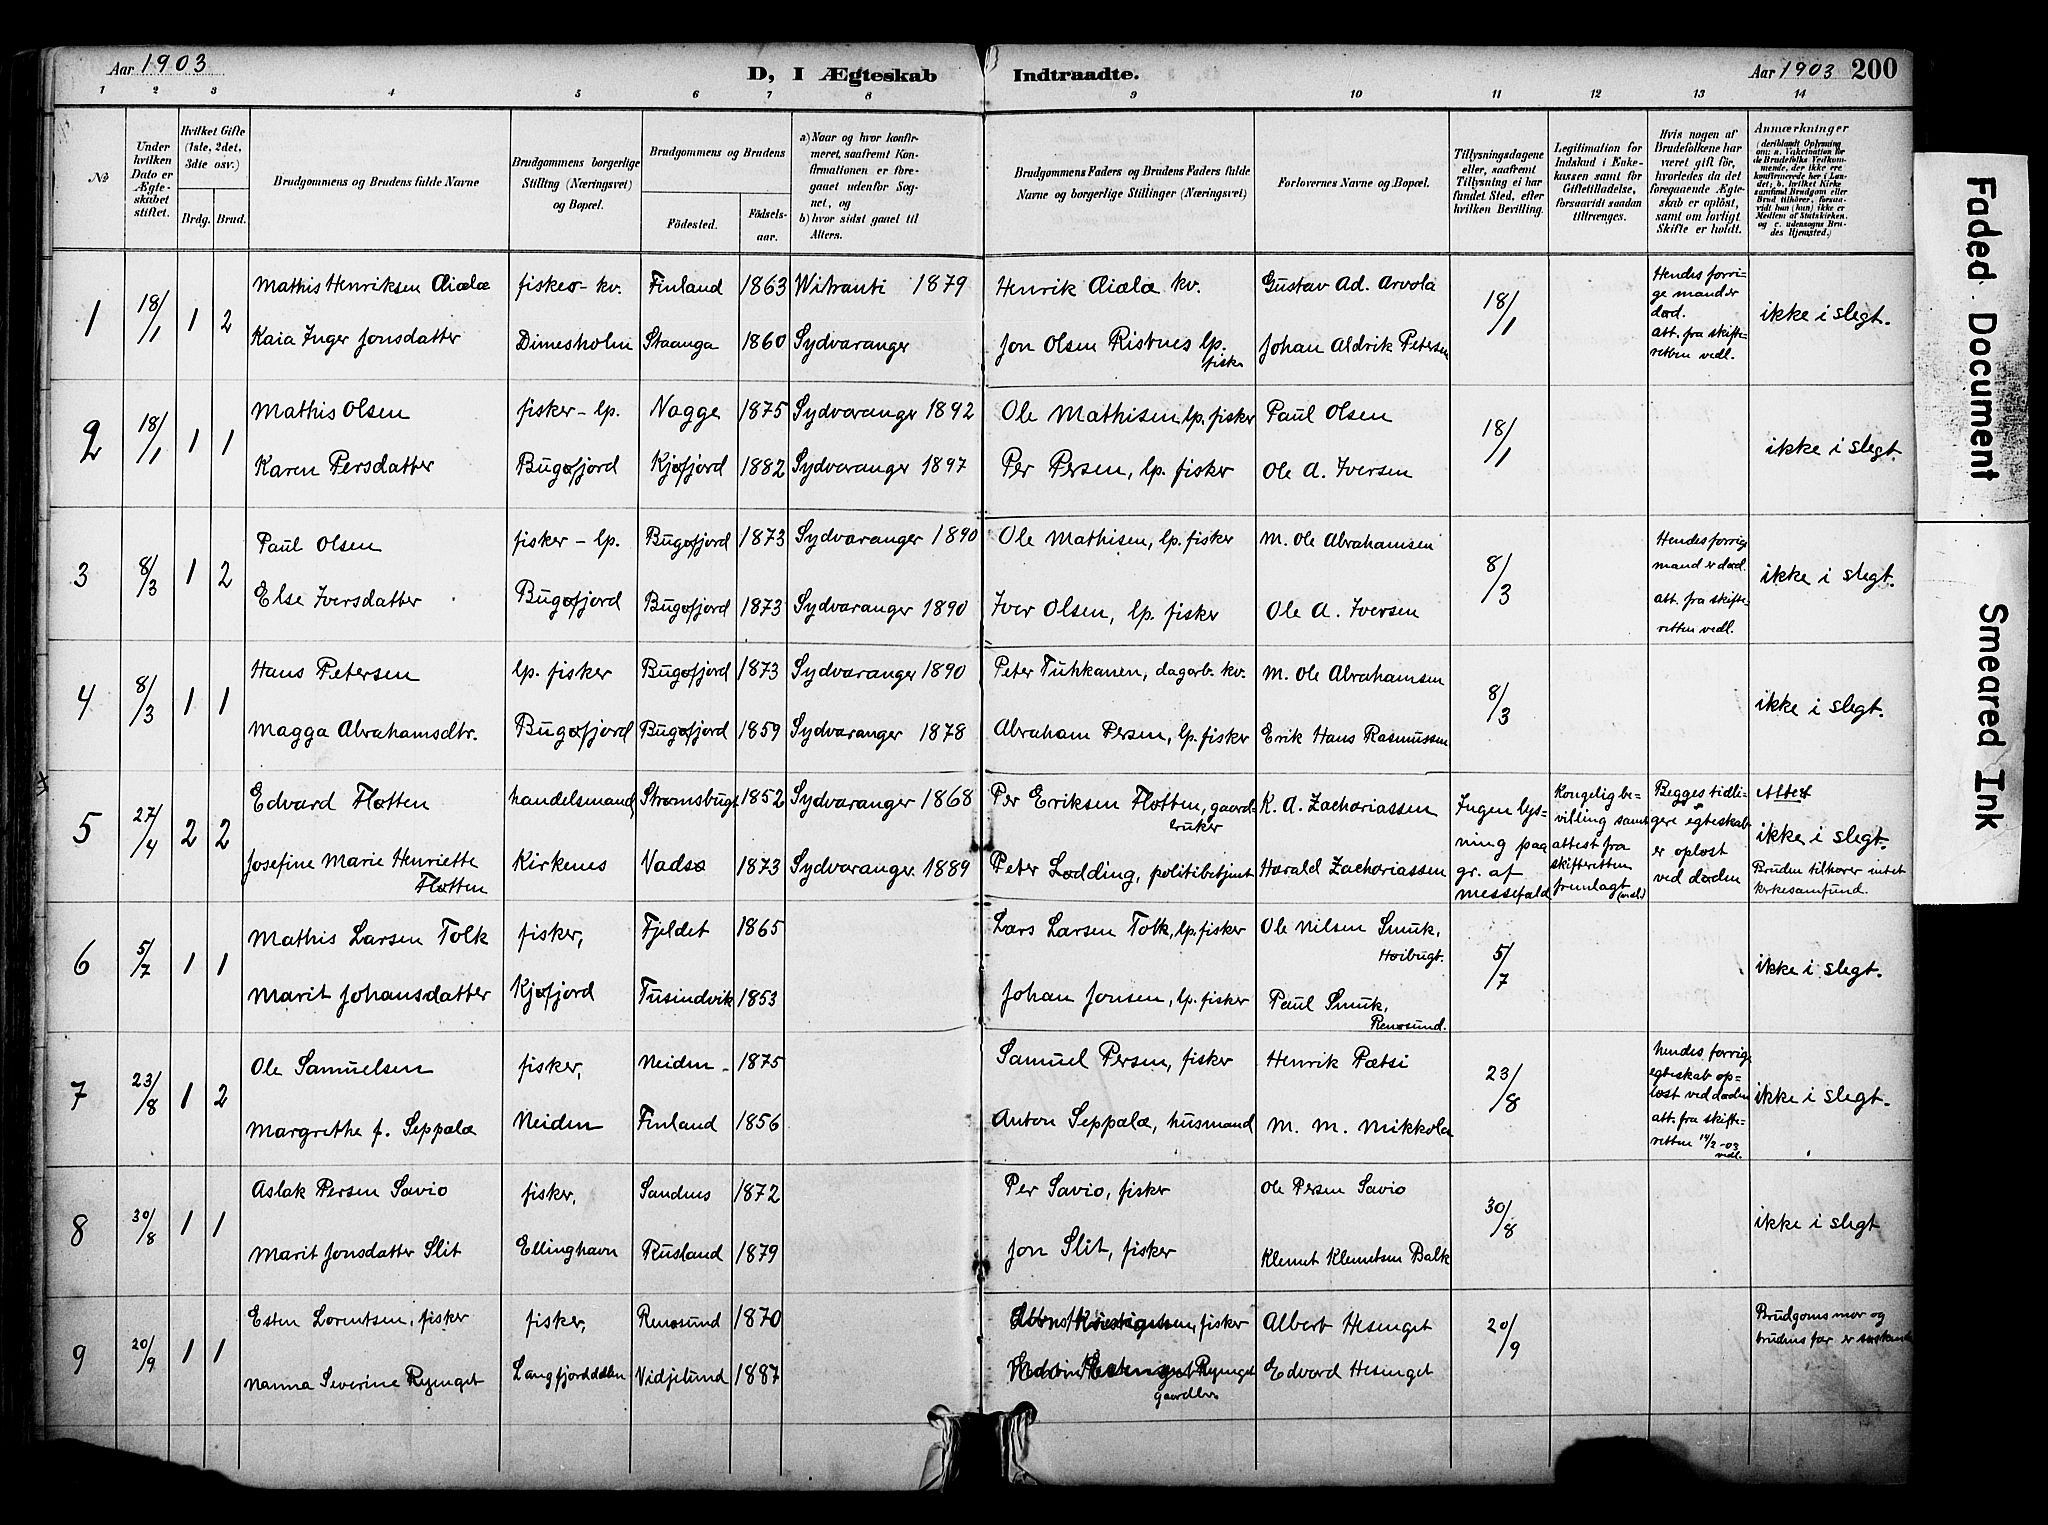 Aar 1903
D, I Ægteskab Indtraadte.
Aar 1903 200
1 2 3 4 5 6 7 8 9 10 11 12 13 14
No
Under hvilken Dato er Ægteskabet stiftet.
Hvilket Gifte (1ste, 2det, 3die osv.)
Brdg. Brud.
Brudgommens og Brudens fulde Navne
Brudgommens borgerlige Stilling (Næringsvei) og Bopæl.
Brudgommens og Brudens
Fødested.
Fødselsaar.
a) Naar og hvor konfirmeret, saafremt Konfirmationen er foregaaet udenfor Sognet, og
b) hvor sidst gaaet til Alters.
Brudgommens Faders og Brudens Faders fulde Navne og borgerlige Stillinger (Næringsvei)
Forlovernes Navne og Bopæl.
Tillysningsdagene eller, saafremt Tillysning ei har fundet Sted, efter hvilken Bevilling.
Legitimation for Indskud i Enkekassen samt for Giftetilladelse, forsaavidt saadan tiltrænges.
Hvis nogen af Brudefolkene har været gift før, hvorledes da det foregaaende Ægteskab er opløst, samt om lovligt Skifte er holdt.
Anmærkninger (deriblandt Oplysning om: a. Vakcination for de Brudefolks Vedkommende, der ikke ere konfirmerede her i Landet; b. hvilket Kirkesamfund Brudgom eller Brud tilhører, forsaavidt han (hun) ikke er Medlem af Statskirken, og c. udensogns Brudes Hjemsted.)
1 18/1 1 2 Mathis Henriksen Aiala fisker - kv. Finland 1863 Witranti 1879 Henrik Aiala kv. Gustav Ad. Arvola 18/1 Hendes forrige mand er død. att. fra skifteretten vedl. ikke i slegt.
Kaia Inger Jonsdatter Dimesholm Staanga 1860 Sydvaranger Jon Olsen Ristnes lp. fisker Johan Aldrik Petersen
2 18/1 1 1 Mathis Olsen fisker - lp. Nagge 1875 Sydvaranger 1892 Ole Mathisen lp. fisker Paul Olsen 18/1 ikke i slegt.
Karen Persdatter Bugøfjord Kjøfjord 1882 Sydvaranger 1897 Per Persen, lp. fisker Ole A. Iversen
3 8/3 1 2 Paul Olsen fisker - lp. Bugøfjord 1873 Sydvaranger 1890 Ole Mathisen, lp. fisker M. Ole Abrahamsen 8/3 Hendes forrige mand er død. att. fra skifteretten vedl. ikke i slegt.
Else Iversdatter Bugøfjord Bugøfjord 1873 Sydvaranger 1890 Iver Olsen, lp. fisker Ole A. Iversen
4 8/3 1 1 Hans Petersen lp. fisker Bugøfjord 1873 Sydvaranger 1890 Peter Tuhkanen, dagarb. kv. M. Ole Abrahamsen 8/3 ikke i slegt.
Magga Abrahamsdtr. Bugøfjord Bugøfjord 1859 Sydvaranger 1878 Abraham Persen, lp. fisker Erik Hans Rasmussen
5 27/4 2 2 Edvard Fløtten handelsmand, Strømsbugt 1852 Sydvaranger 1868 Per Eriksen Fløtten, gaardbruker K. A. Zachariassen Ingen lysning paa gr. af messefald Kongelig bevilling samt attest fra skifteretten fremlagt (vedl.) Begges tidligere egteskab er opløst ved døden ikke i slegt. Bruden tilhører intet kirkesamfund.
Josefine Marie Henriette Fløtten Kirkenes Vadsø 1873 Sydvaranger 1889 Peter Lødding, politibetjent Harald Zachariassen
6 5/7 1 1 Mathis Larsen Tolk fisker, Fjeldet 1865 Lars Larsen Tolk, lp. fisker Ole Nilsen Smuk, Høibugt. 5/7 ikke i slegt.
Marit Johansdatter Kjøfjord Tusindvik 1853 Johan Jonsen, lp. fisker Paul Smuk, Renøsund.
7 23/8 1 2 Ole Samuelsen fisker, Neiden 1875 Samuel Persen, fisker Henrik Pætsi 23/8 hendes forrige egteskab opløst ved døden att. fra skifteretten 14/2-03 vedl. ikke i slegt.
Margrethe f. Seppälä Neiden Finland 1856 Anton Seppälä, husmand M. M. Mikkola
8 30/8 1 1 Aslak Persen Savio fisker, Sandnes 1872 Per Savio, fisker Ole Persen Savio 30/8 ikke i slegt
Marit Jonsdatter Slit Ellinghavn Rusland 1879 Jon Slit, fisker Klemet Klemetsen Balk
9 20/9 1 1 Esten Lorentsen, fisker fisker, Renøsund 1870 fisker Albert Hesenget 20/9 Brudgoms mor og brudens far er søskende
Nanna Severine Ryenget Langfjorddalen Vidjelund 1887 Ryenget gaardbr. Edvard Hesenget
Faded Document
Smeared Ink